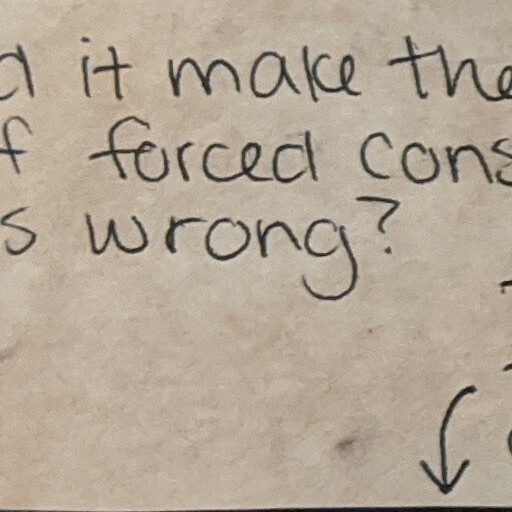 it make the
forced cons
wrong?